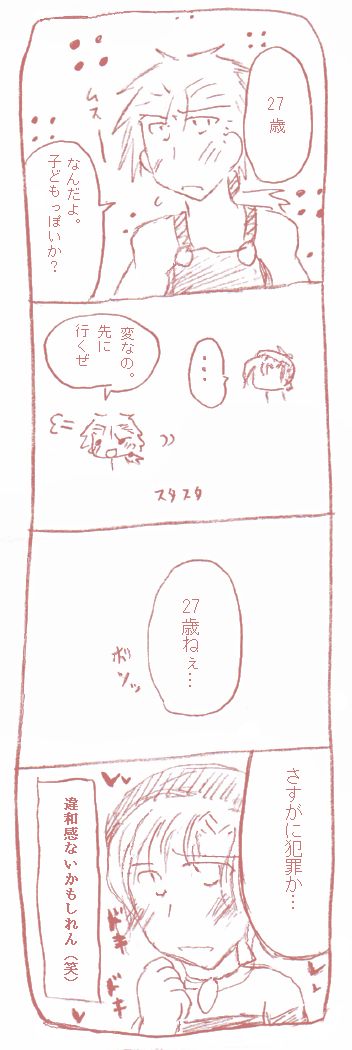 27
歳
ムスー
なんだよ。
子どもっぽいか？
…
変なの。
先に
行くぜ
スタスタ
27
歳ねぇ…
ボソッ
さすがに犯罪か…
違和感ないかもしれん（笑）
ドキ
ドキ